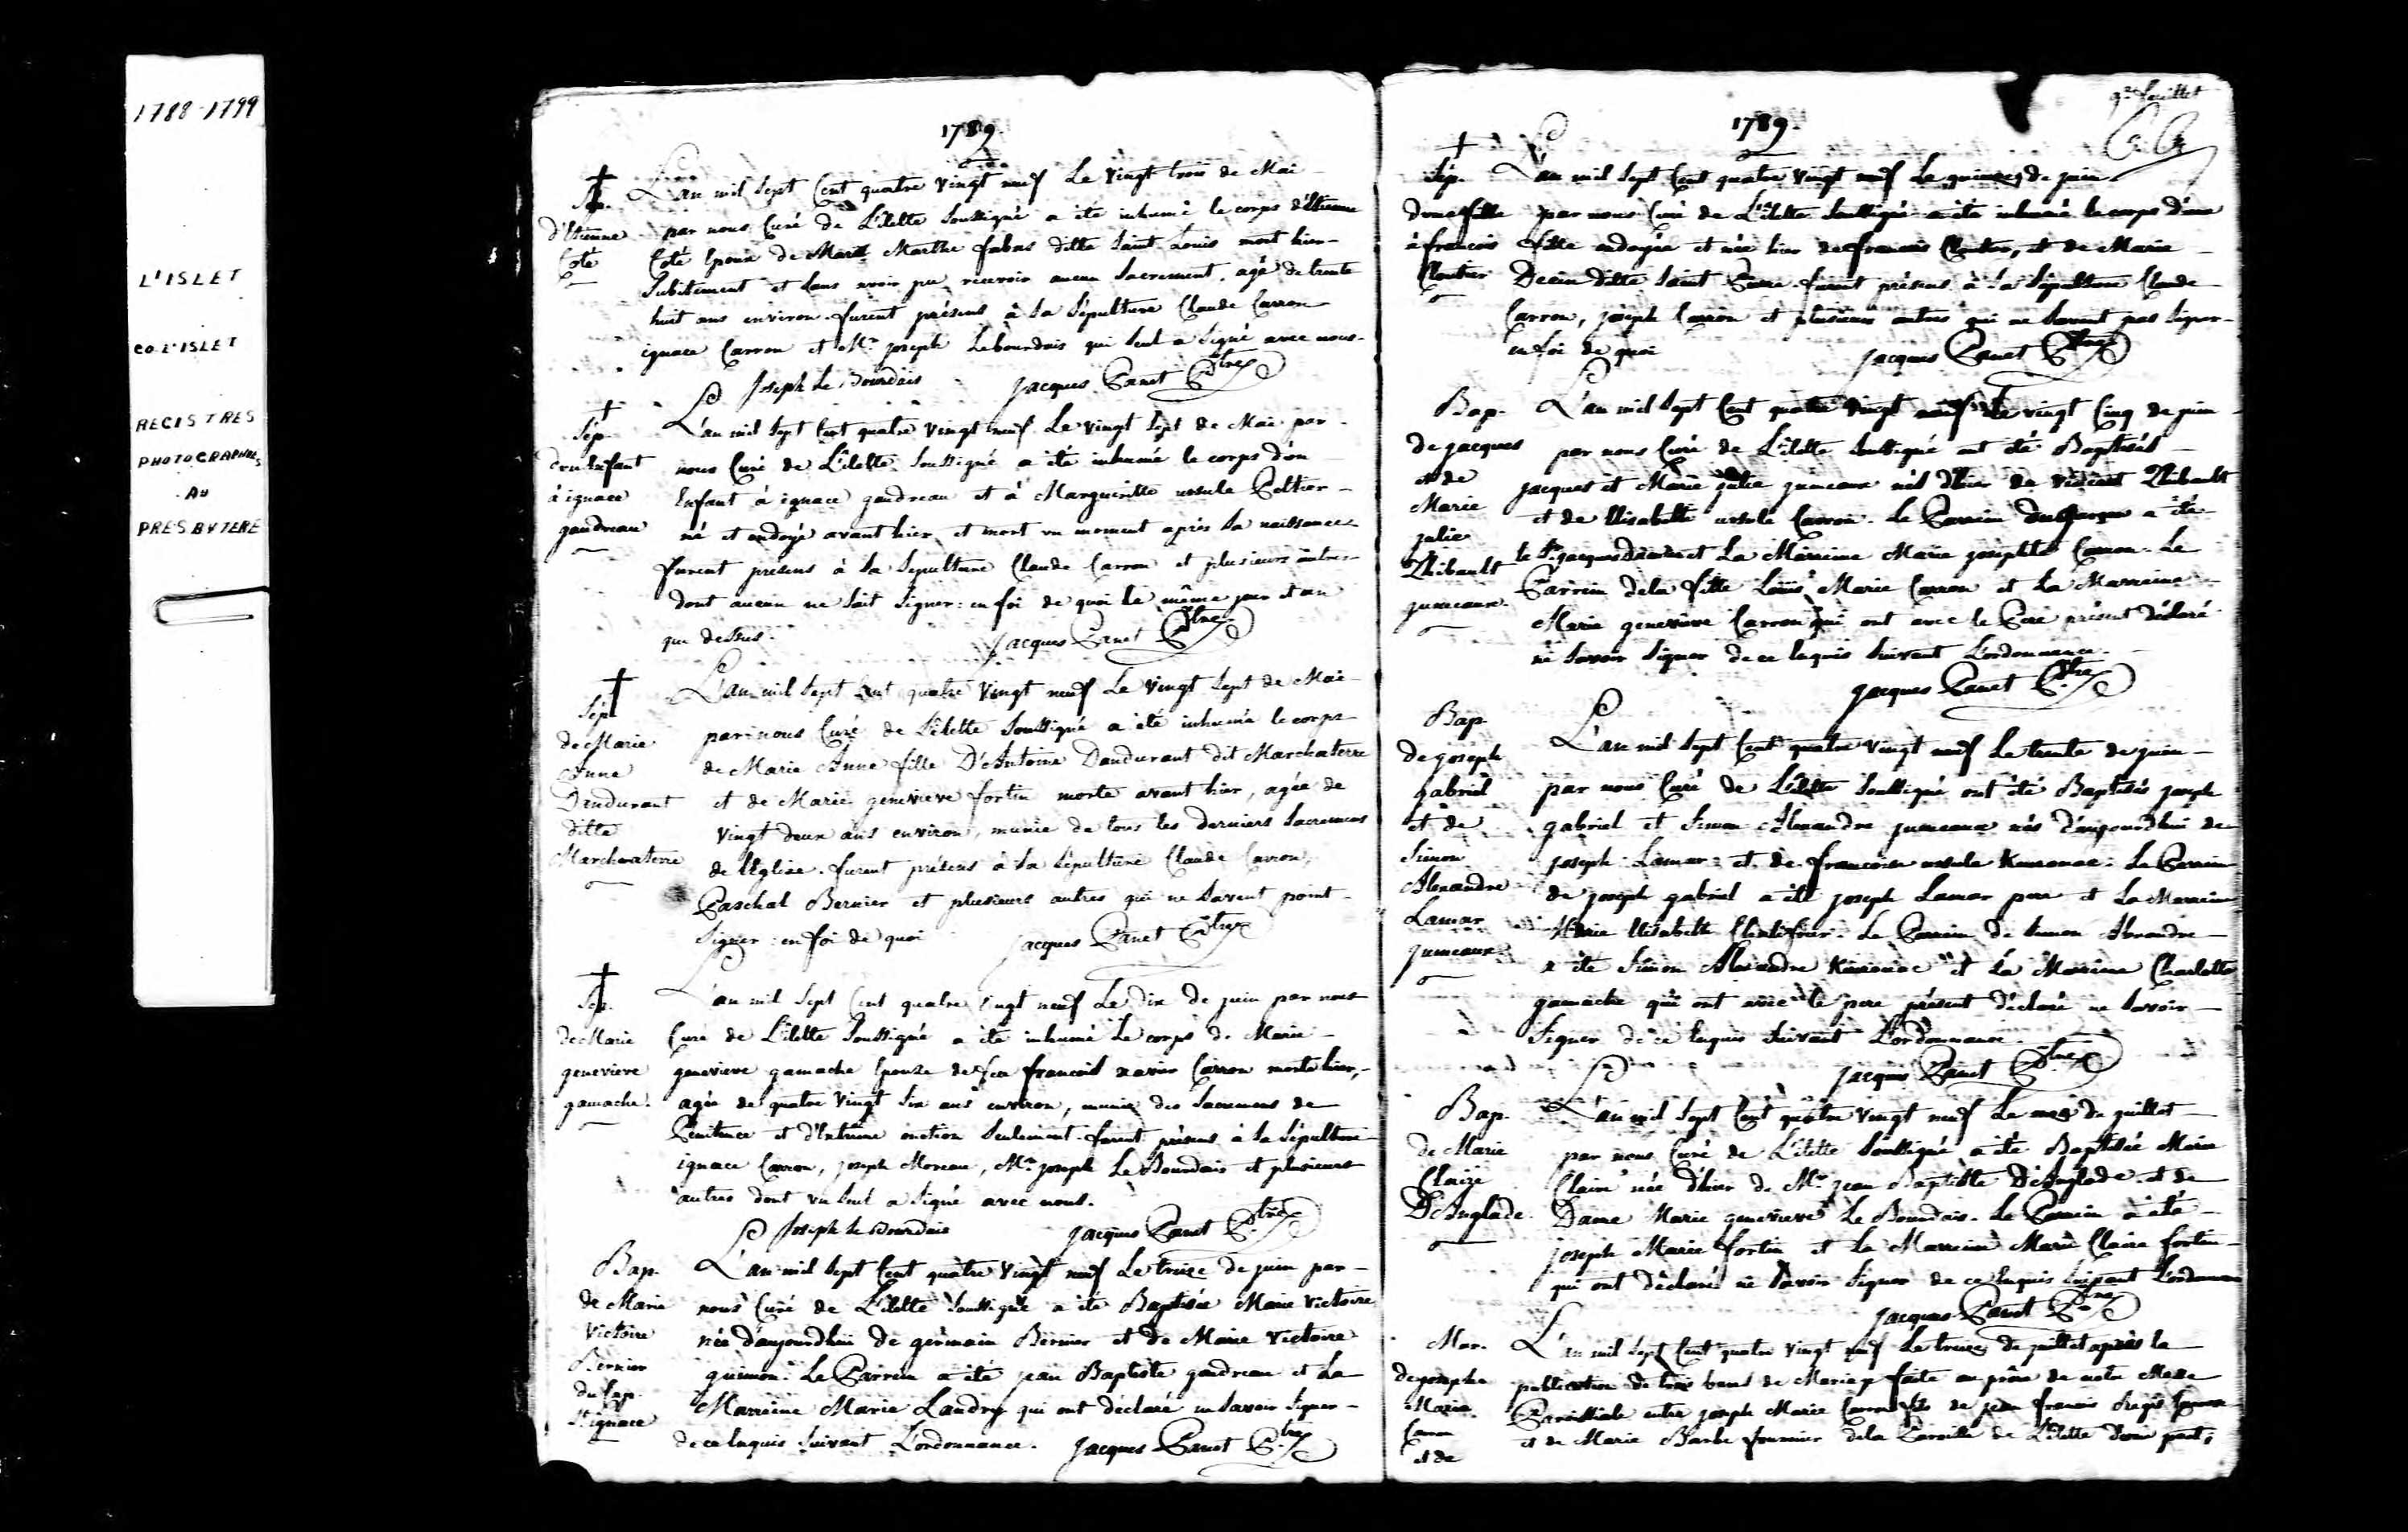 1788-1799
L'ISLET
CO. L'ISLET
REGISTRES
PHOTOGRAPHIES
AU
PRESBYTERE
1789.
Sép.
d'Etienne
Coté
L'an mil Sept Cent quatre vingt neuf Le vingt trois de Mai
par nous Curé de L'ilette Soussigné a été inhumé le corps d'Etienne
Coté Epoux de Marie Marthe fabas ditte Saint Louis mort hier
Subitement et sans avoir pu recevoir aucun Sacrement, agé de trente
huit ans environ. furent présens à Sa Sépulture Claude Carron
ignace Carron et Mr. joseph Lebourdais qui Seul a Signé avec nous.
Joseph Le Bourdais jacques Panet Ptre
Sép.
d'un Enfant
à ignace
gaudreau
L'an mil Sept Cent quatre vingt neuf Le vingt Sept de Mai par
nous Curé de L'ilette Soussigné a été inhumé le corps d'un
Enfant à ignace gaudreau et à Margueritte ursule Peltier
né et ondoyé avant hier et mort un moment après Sa naissance
furent présens à Sa Sépulture Claude Carron et plusieurs autres
dont aucun ne Sait Signer: en foi de quoi le même jour et an
que dessus. jacques Panet Ptre
Sép.
de Marie
Anne
Dandurant
ditte
Marchaterre
L'an mil Sept Cent quatre vingt neuf Le vingt Sept de Mai
par nous Curé de L'ilette Soussigné a été inhumé le corps
de Marie Anne fille D'Antoine Dandurant dit Marchaterre
et de Marie genevieve fortin morte avant hier, agée de
vingt deux ans environ, munie de tous les derniers Sacremens
de l'Eglise. furent présens à Sa Sépulture Claude Carron,
Paschal Bernier et plusieurs autres qui ne Savent point
Signer: en foi de quoi jacques Panet Ptre
Sép.
de Marie
genevieve
gamache.
L'an mil Sept Cent quatre vingt neuf Le dix de juin par nous
Curé de L'ilette Soussigné a été inhumé Le corps de Marie
genevieve gamache Epouse de feu francois xavier Carron morte hier,
agée de quatre vingt Six ans environ, munie des Sacremens de
Penitence et d'Extrême onction Seulement. furent présens à Sa Sépulture
ignace Carron, joseph Moreau, Mr. joseph Le Bourdais et plusieurs
autres dont un Seul a Signé avec nous.
Joseph le Bourdais jacques Panet Ptre
Bap.
de Marie
Victoire
Bernier
du Cap
St. ignace
L'an mil Sept Cent quatre vingt neuf Le treize de juin par
nous Curé de L'ilette Soussigné a été Baptisée Marie Victoire
née d'aujourdhui de germain Bernier et de Marie Victoire
guimon. Le Parrein a été jean Baptiste gaudreau et La
Marreine Marie Landry qui ont declaré ne Savoir Signer
de ce Enquis Suivant L'ordonnance. jacques Panet Ptre
9e. feuillet
1789.
Sép.
d'une fille
à francois
Cloutier
L'an mil Sept Cent quatre vingt neuf Le quinze de juin
par nous Curé de L'ilette Soussigné a été inhumé le corps d'une
fille ondoyée et née hier de francois Cloutier, et de Marie
ditte Saint Pierre. furent présens à Sa Sépulture Claude
Carron, joseph Carron et plusieurs autres qui ne Savent pas Signer
en foi de quoi jacques Panet Ptre
Bap.
de jacques
et de
Marie
julie
Thibault
jumeaux.
L'an mil Sept Cent quatre vingt neuf Le vingt Cinq de juin
par nous Curé de L'ilette Soussigné ont été Baptisés
jacques et Marie julie jumeaux nés d'hier de Vincent Thibault
et de Elisabeth ursule Carron. Le Parrein du garçon a été
le Sr. jacques et La Marreine Marie josephte Carron. Le
Parrein de la fille Louis Marie Carron et La Marreine
Marie genevieve Carron qui ont avec le Pere présent déclaré
ne Savoir Signer de ce Enquis Suivant L'ordonnance.
jacques Panet Ptre
Bap.
de joseph
gabriel
et de
Simon
Alexandre
Lamar
jumeaux
L'an mil Sept Cent quatre vingt neuf Le trente de juin
par nous Curé de L'ilette Soussigné ont été Baptisés joseph
gabriel et Simon Alexandre jumeaux nés d'aujourdhui de
joseph Lamar et de francoise ursule Kuerouac. Le Parrein
de joseph gabriel a été joseph Lamar pere et La Marreine
Marie Elisabeth. Le Parrein de Simon Alexandre
a été Simon Alexandre Kuerouac et La Marreine Charlotte
gamache qui ont avec le pere présent déclaré ne Savoir
Signer de ce Enquis Suivant L'ordonnance.
jacques Panet Ptre
Bap.
de Marie
Claire
D'Anglade.
L'an mil Sept Cent quatre vingt neuf Le onze de juillet
par nous Curé de L'ilette Soussigné a été Baptisée Marie
Claire née d'hier de Mr. jean Baptiste D'Anglade et de
Dame Marie genevieve Le Bourdais. Le Parrein a été
joseph Marie fortin et La Marreine Marie Claire fortin
qui ont déclaré ne Savoir Signer de ce Enquis Suivant L'ordonnance
jacques Panet Ptre
Mar.
de joseph
Marie
Carron
et de
L'an mil Sept Cent quatre vingt neuf Le treize de juillet après la
publication de trois bans de Mariage faite au prône de notre Messe
Paroissiale entre joseph Marie Carron fils de jean francois Regis Carron
et de Marie Barbe fournier de la Paroisse de L'ilette d'une part,